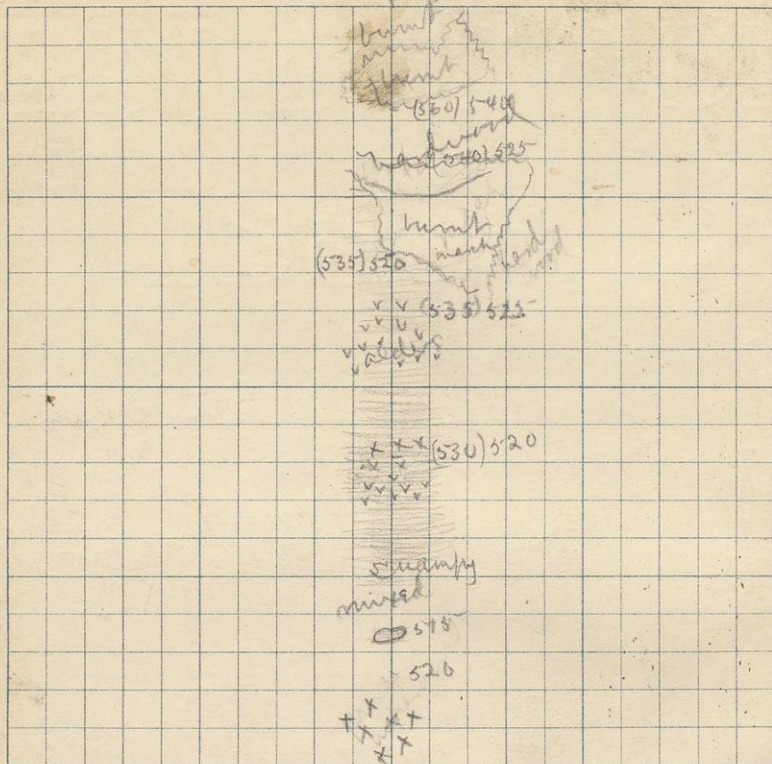 burnt
burnt
(560) 540
hardwood
(540) 525
burnt
hard
wood
(535) 520
(535) 525
alders
(530) 520
swampy
mixed
515
520